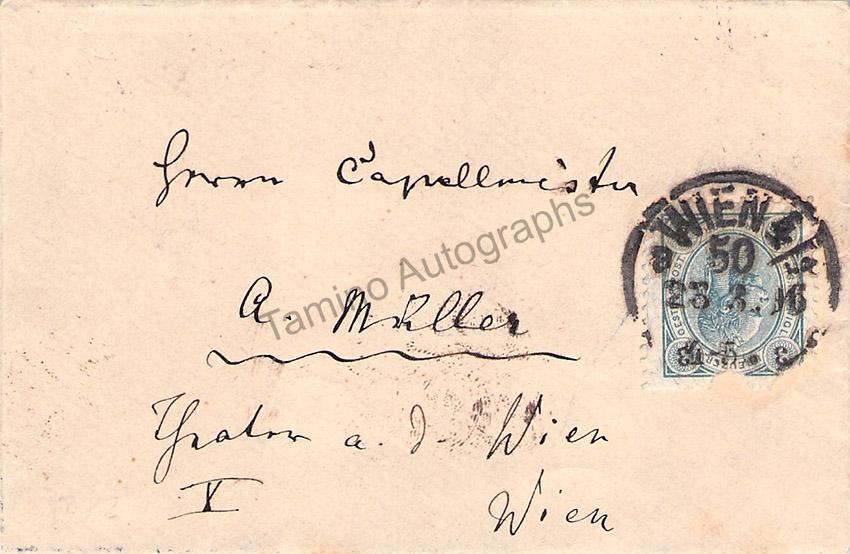 Herrn Capellmeister
A. Müller
Theater a. d. Wien
V Wien
WIEN 4/1
50
Tamino Autographs